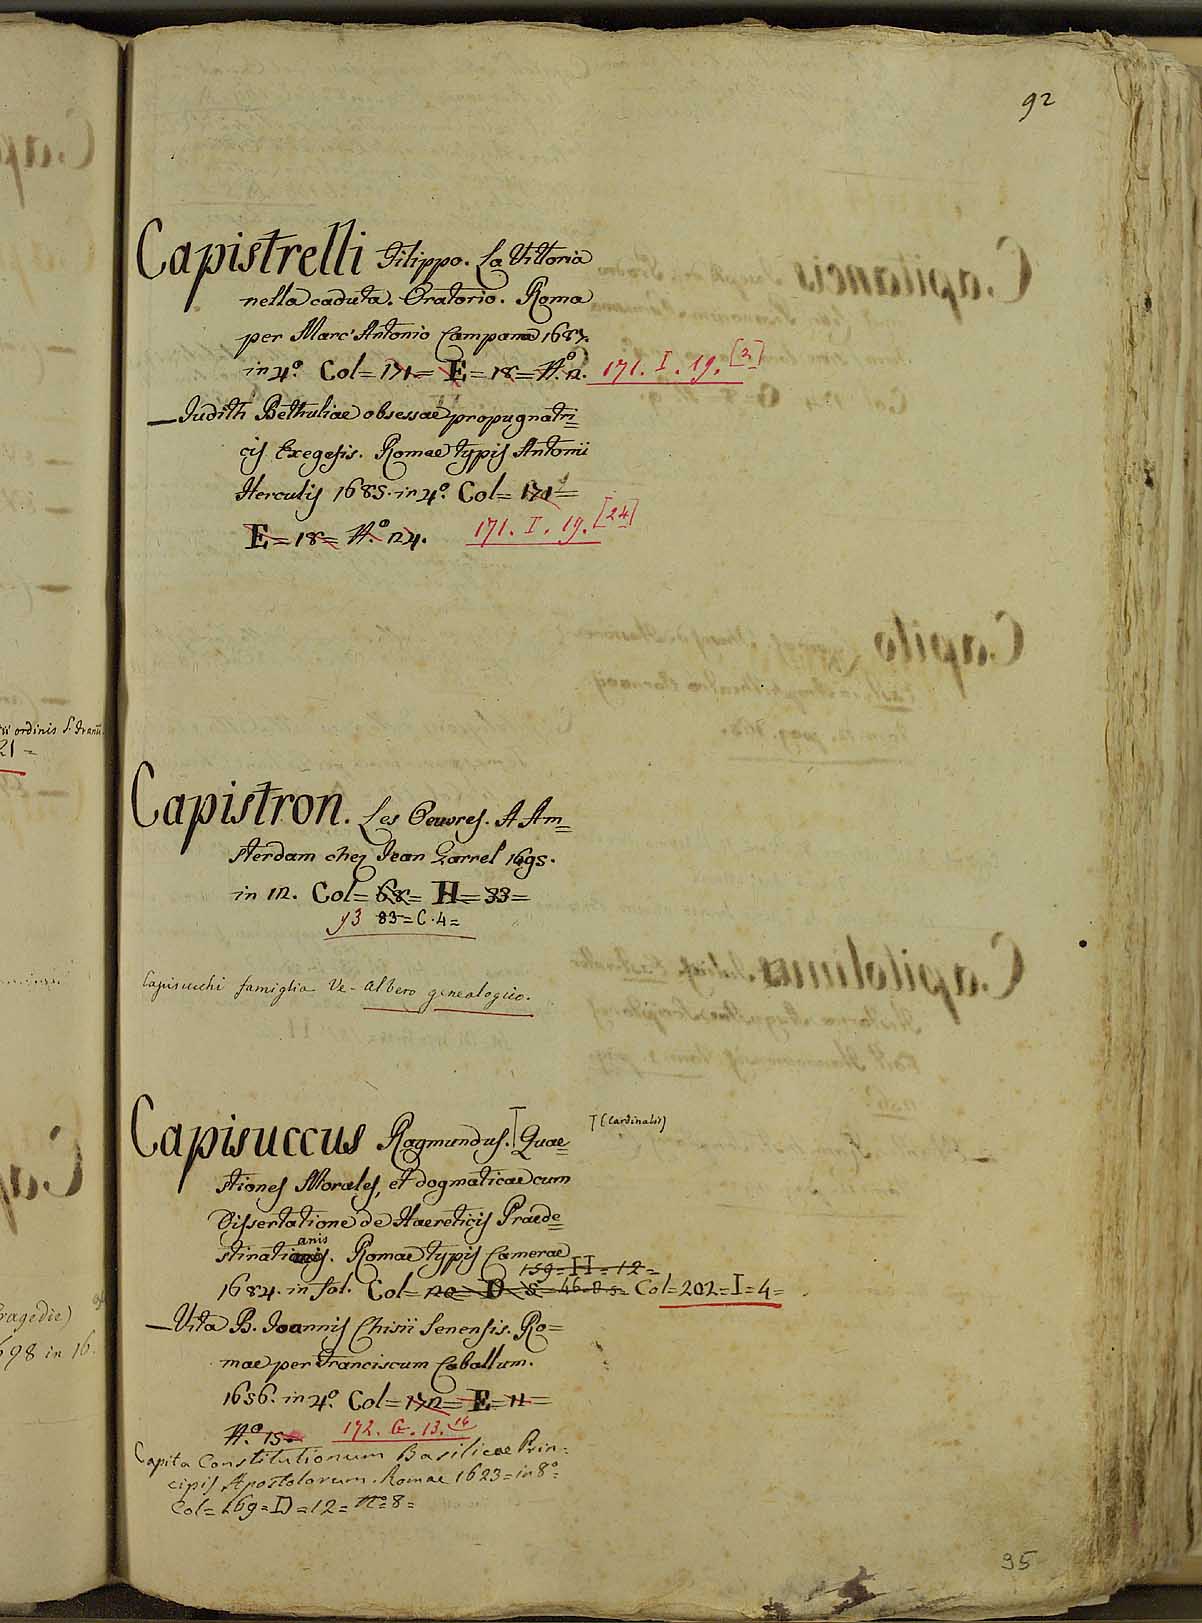 92
Capistrelli Filippo. La Vittoria
nella caduta. Oratorio. Roma
per Marc'Antonio Campana 1687.
in 4.º Col= 171= E= 18= N.º 2. 171. I. 19. [2]
— Judith Bethuliae obsessae propugnatri=
cis Exegesis. Romae typis Antonii
Herculis 1685. in 4.º Col= 171=
E= 18= N.º 24. 171. I. 19. [24]
Capistron. Les Oeuvres. A Am=
sterdam chez Jean Garrel 1695.
in 12. Col= 68= H= 33=
y3 83= C. 4=
Capisucchi famiglia Ve- Albero genealogico.
Capisuccus Raymundus. Quae= T (Cardinalis)
stiones Morales, et dogmaticae cum
Dissertatione de Haereticis Praede=
anis
stinatis. Romae typis Camerae
159= II= 12=
1684. in fol. Col= 120= D= 8= Col= 202= I= 4=
— Vita B. Joannis Chisii Senensis. Ro=
mae per Franciscum Caballum.
1656. in 4.º Col= 172= E= 11=
N.º 15= 172. G. 13. 14
Capita Constitutionum Basilicae Prin=
cipis Apostolorum. Romae 1623= in 8º=
Col= 169= D= 12= Nº 8=
95
ordinis S. Fran
21=
Tragedie)
698 in 16.